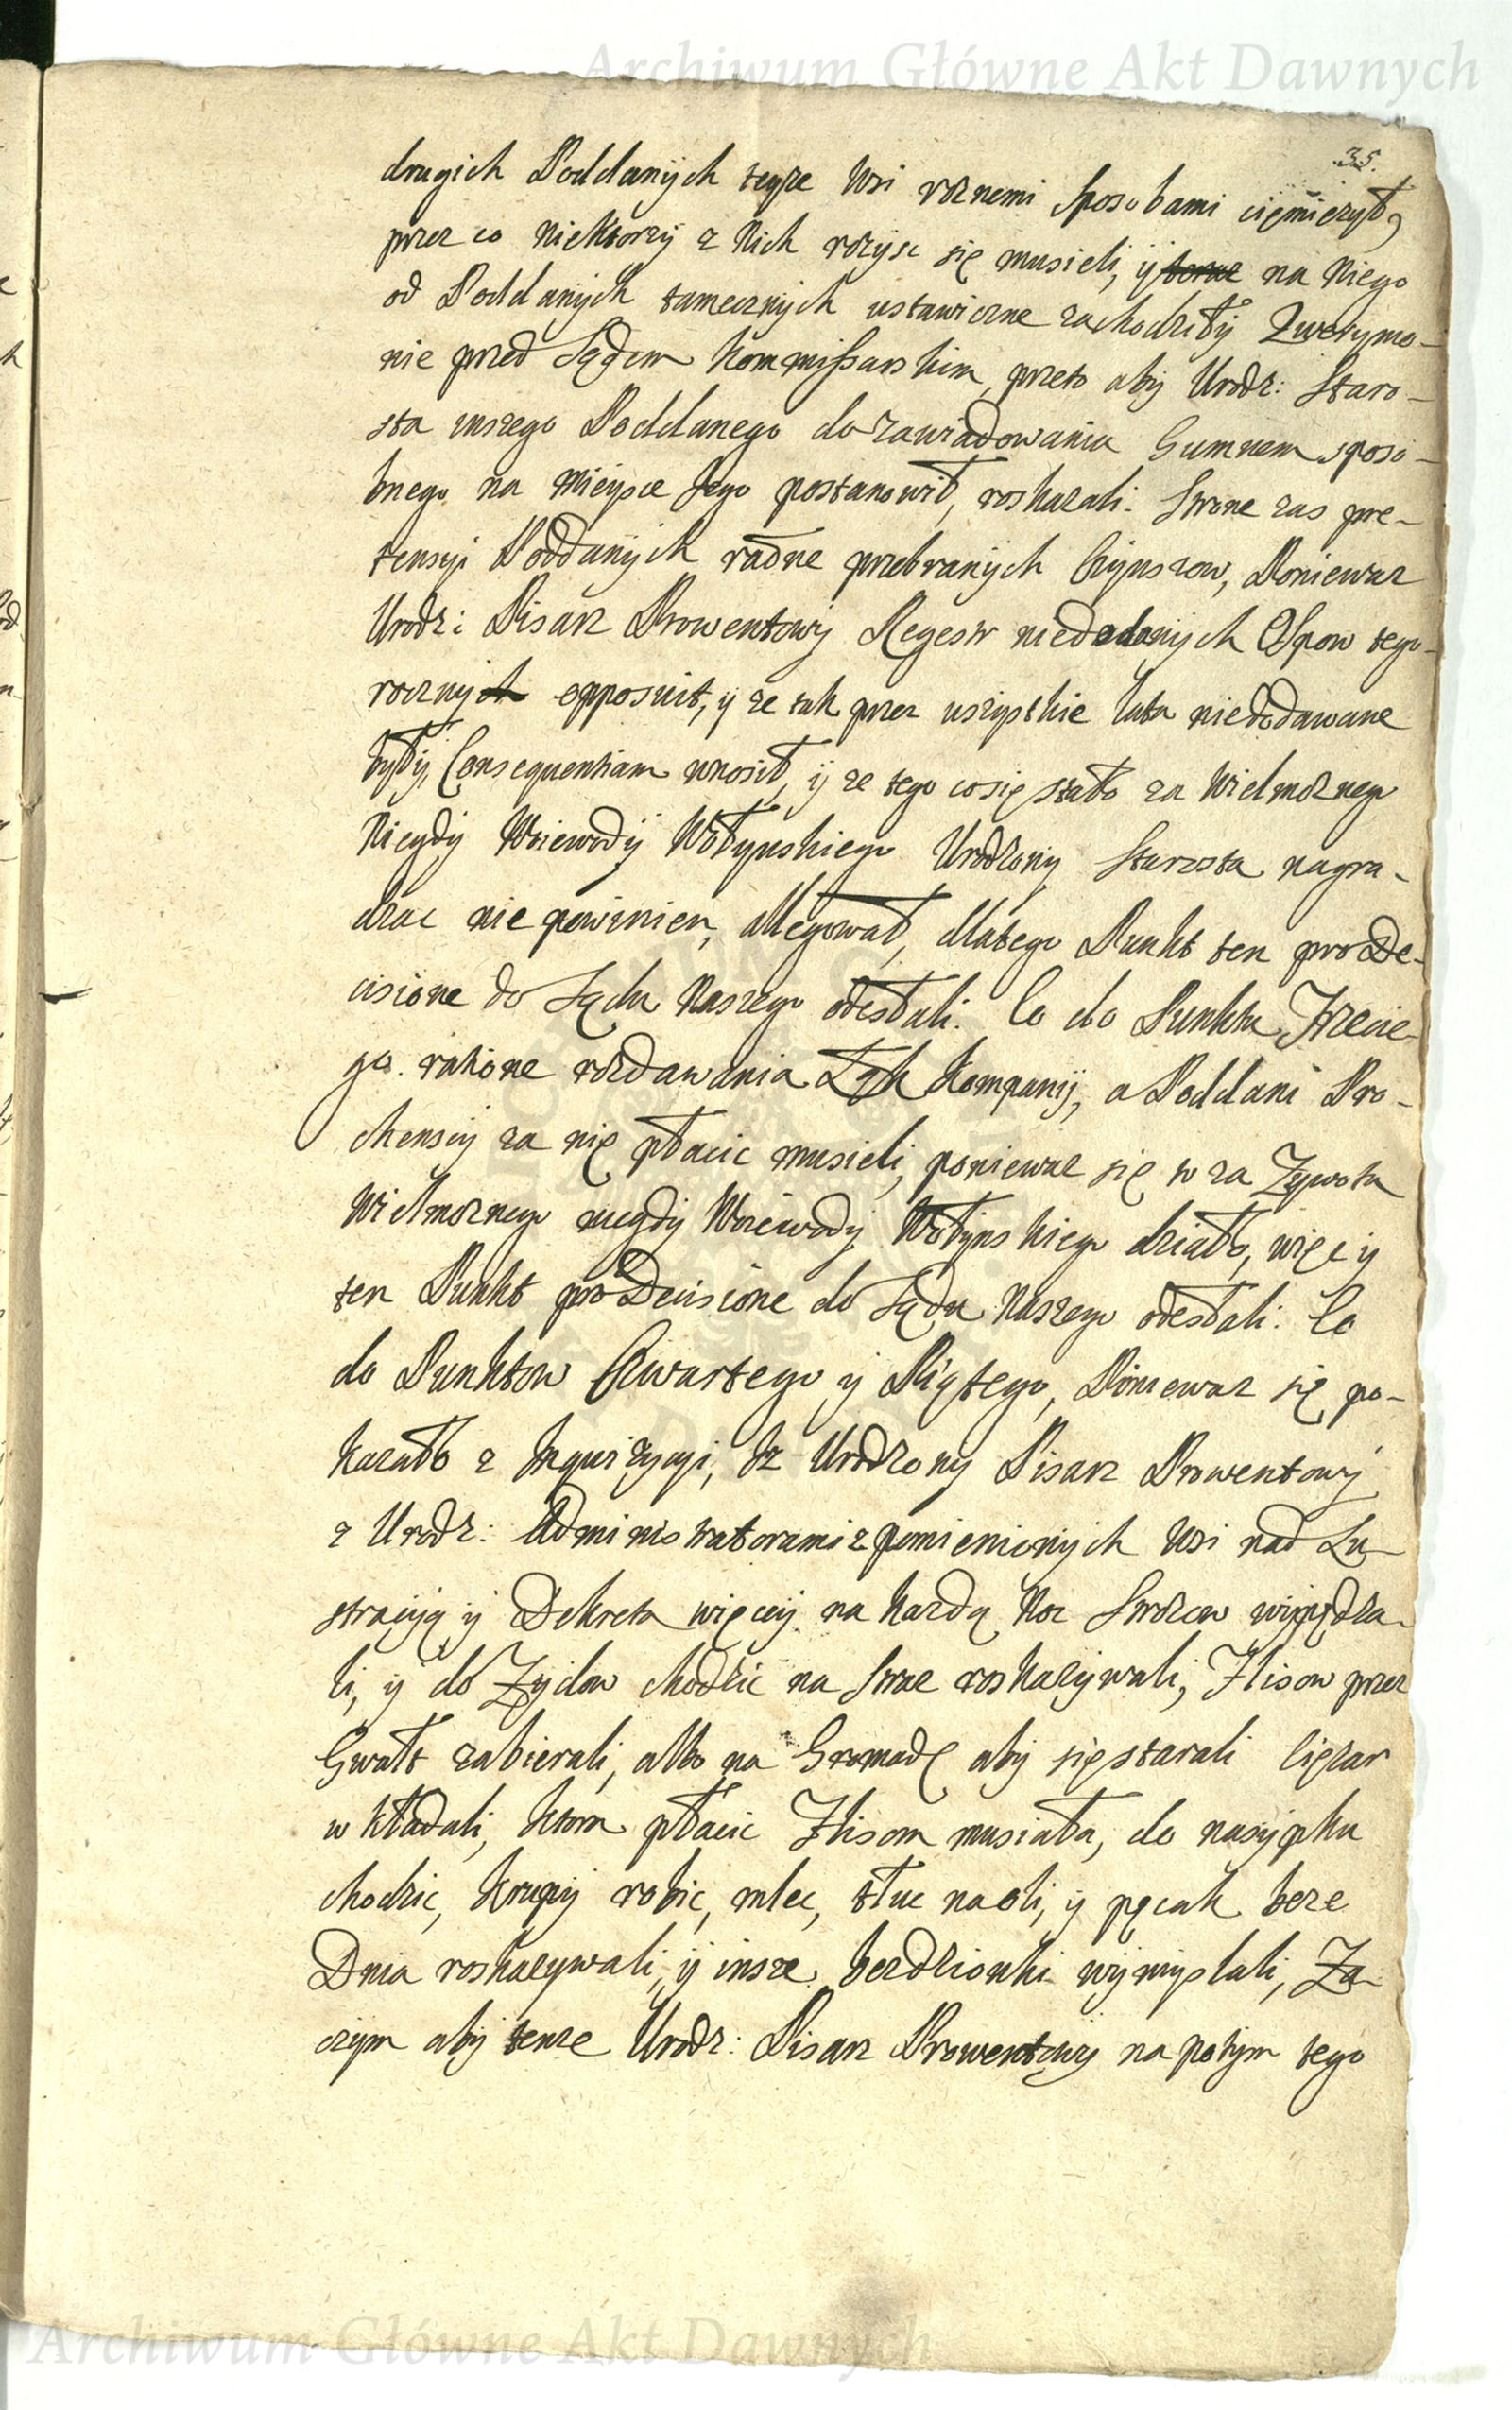 Archiwum Główne Akt Dawnych
35.
drugich Poddanych teyze Wsi roznemi Sposobami cięmiezył,
przez co niektorzy z Nich rozysc się musieli, y na Niego
od Poddanych tamecznych ustawiczne zachodziły Zwerymo-
nie przed Sądem Kommissarskim, przeto aby Urodz: Staro-
sta inszego Poddanego do zawiadowania Gumnem sposo-
bnego na Mieysce Jego postanowił, roskazali. Strone zas pre-
tensyi Poddanych radne przebranych Czynszow, Poniewaz
Urodz: Pisarz Prowentowy Regestr niedodanych Ospow tego-
rocznych opposuit, y ze tak przez wszystkie lata niedodawane
były, Consequentiam wnosił, y ze tego co się stało za Wielmoznego
Niegdy Woiewody Wołynskiego Urodzony Starosta nagra-
dzac nie powinien, allegował, dlatego Punkt ten pro De-
cisione do Sądu Naszego odesłali. Co do Punktu Trzecie-
go ratione rozdawania Łąk Kompanij, a Poddani Pro-
chenscy za nię płacic musieli, poniewaz się to za Zywota
Wielmoznego niegdy Woiewody Wołynskiego działo, więc y
ten Punkt pro Decisione do Sądu Naszego odesłali. Co
do Punktow Czwartego y Piątego, Poniewaz się po-
kazało z Inquizycyi, Iz Urodzony Pisarz Prowentowy
z Urodz: Administratorami z pomienionych Wsi nad Lu-
stracyą y Dekreta więcey na Kazdą Noc Strozow wypędza-
li, y do Zydow chodzic na Straz roskazywali, Flisow przez
Gwałt zabierali, albo na Gromadę aby się starali Ciężar
wkładali, Ktora płacic Flisom musiała, do nasypku
chodzic, Krupy robic, mlec, tłuc naoli, y pęcak beze
Dnia roskazywali, y insze bezdzionki wymyslali, Za-
czym aby tenze Urodz: Pisarz Prowentowy na potym tego
Archiwum Główne Akt Dawnych